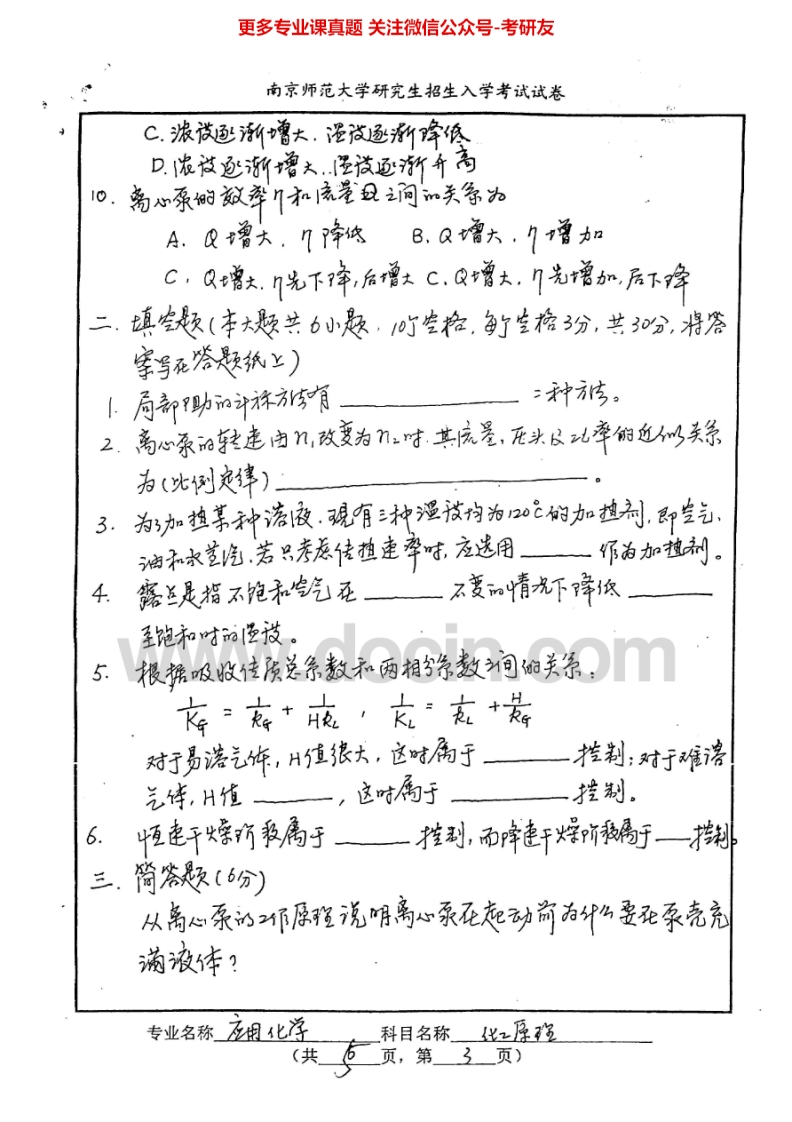 更多专业课真题 关注微信公众号-考研友
南京师范大学研究生招生入学考试试卷
C. 浓度逐渐增大. 温度逐渐降低
D. 浓度逐渐增大. 温度逐渐升高
10. 离心泵的效率η和流量Q之间的关系为
A. Q增大. η降低 B. Q增大. η增加
C. Q增大. η先下降,后增大 C. Q增大. η先增加,后下降
二. 填空题(本大题共6小题. 10个空格. 每个空格3分, 共30分, 将答
案写在答题纸上)
1. 局部阻助的计称方法有 ________ 二种方法。
2. 离心泵的转速由n₁改变为n₂时. 其流量, 压头及功率的近似关系
为(比例定律) ________ 。
3. 为了加热某种溶液. 现有三种温度均为120℃的加热剂, 即空气.
油和水蒸汽. 若只考虑传热速率时. 应选用 ________ 作为加热剂。
4. 露点是指不饱和空气在 ________ 不变的情况下降低 ________
至饱和时的温度。
www.docin.com
5. 根据吸收传质总系数和两相分系数之间的关系:
1/K_G = 1/k_G + 1/Hk_L , 1/K_L = 1/k_L + H/k_G
对于易溶气体, H值很大, 这时属于 ________ 控制; 对于难溶
气体, H值 ________ , 这时属于 ________ 控制。
6. 恒速干燥阶段属于 ________ 控制, 而降速干燥阶段属于 ____ 控制。
三. 简答题(6分)
从离心泵的工作原理说明离心泵在起动前为什么要在泵壳充
满液体?
专业名称 应用化学 科目名称 化工原理
(共 5 页, 第 3 页)